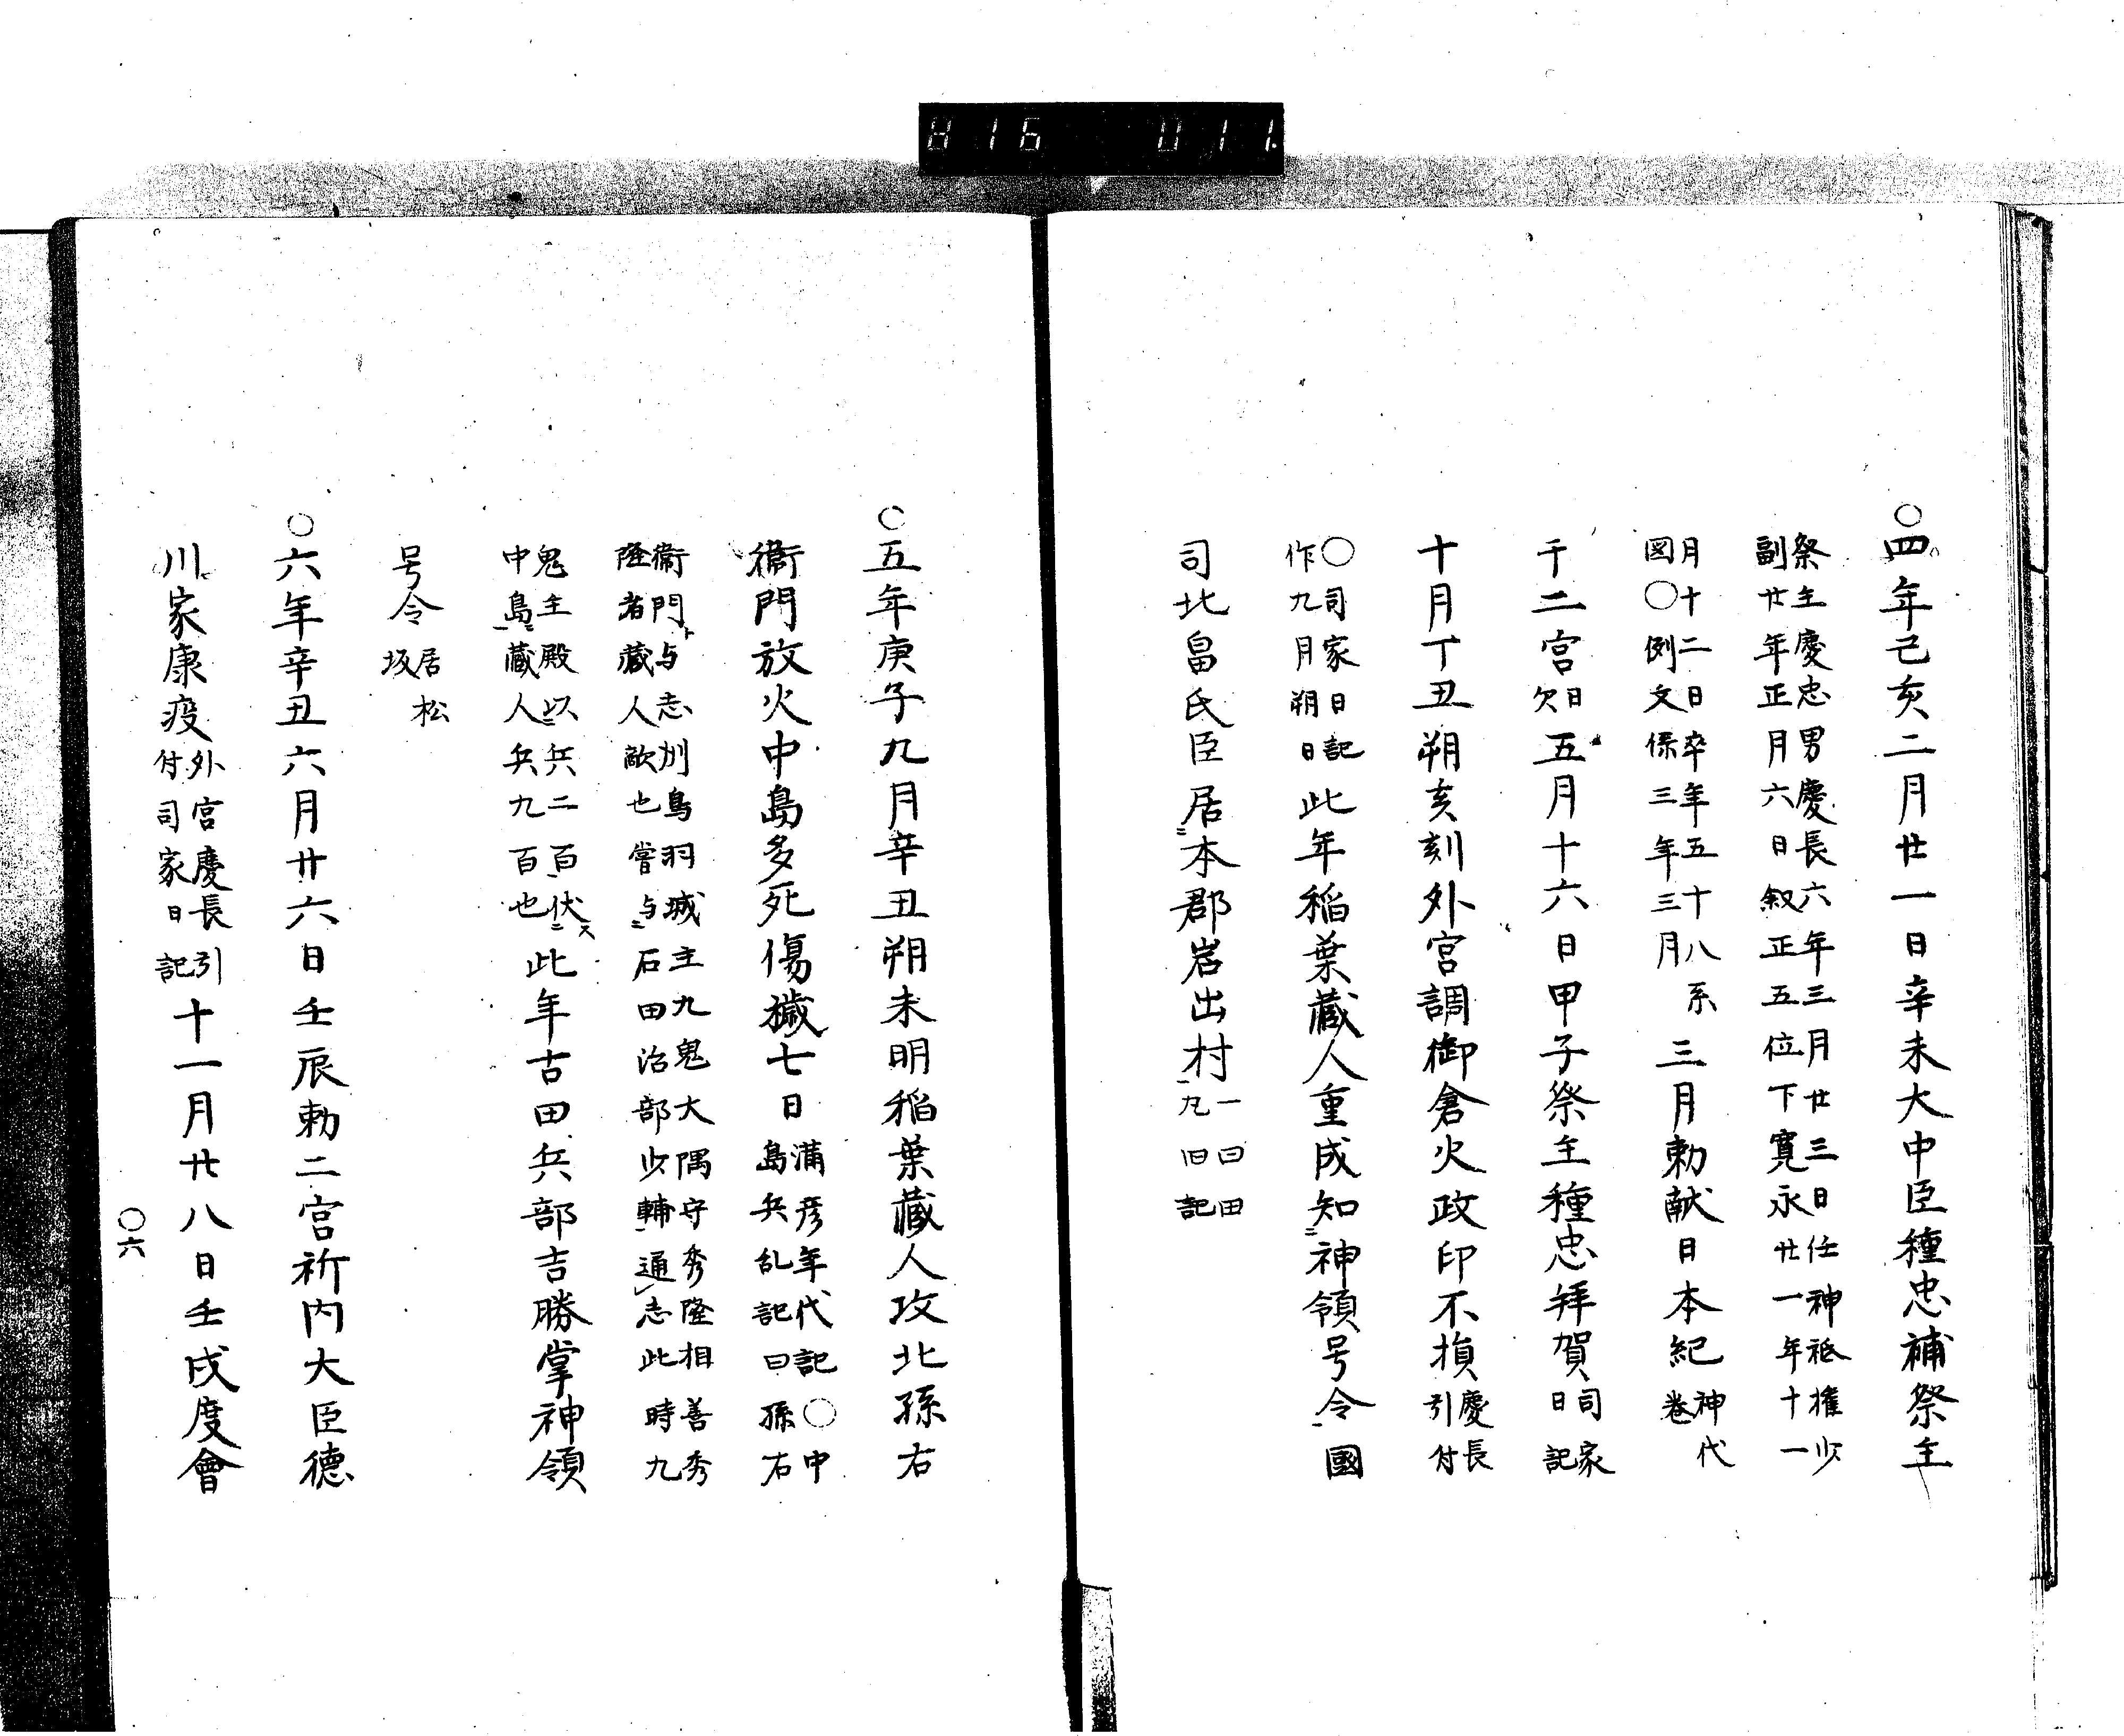 816 011.
○四年己亥二月廿一日辛未大中臣種忠補祭主
祭主慶忠男慶長六年三月廿三日任神祇権少
副廿年正月六日叙正五位下寛永廿一年十一
月十二日卒年五十八系
図○例文係三年三月
三月勅献日本紀神代巻
于二宮日欠五月十六日甲子祭主種忠拜賀司家日記
十月丁丑朔亥刻外宮調御倉火政印不損慶長引付
○司家日記
作九月朔日
此年稲葉蔵人重成知ニ神領号令一國
司北畠氏臣居ニ本郡岩出村一一曰田丸旧記
○五年庚子九月辛丑朔未明稲葉蔵人攻北孫右
衛門放火中島多死傷穢七日
満彦年代記○中
島兵乱記曰孫右
衛門ト与志州鳥羽城主九鬼大隅守秀隆相善秀
隆者蔵人敵也嘗与ニ石田治部少輔一通レ志此時九
鬼主殿以ニ兵二百一伏ニ
中島一蔵人兵九百也
此年吉田兵部吉勝掌神領
号令居松坂
○六年辛丑六月廿六日壬辰勅二宮祈内大臣徳
川家康疫
外宮慶長引
付司家日記
十一月廿八日壬戌度會
○六